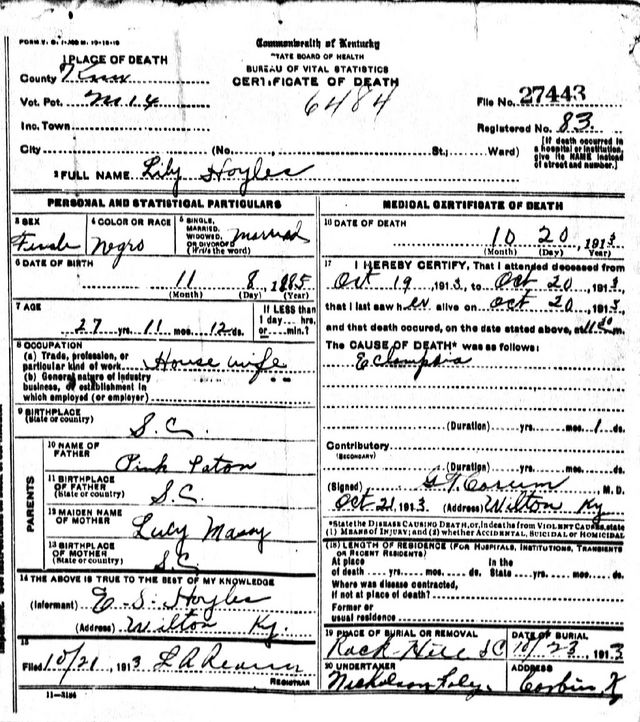 Commonwealth of Kentucky
STATE BOARD OF HEALTH
BUREAU OF VITAL STATISTICS
CERTIFICATE OF DEATH
1 PLACE OF DEATH
County Knox
Vot. Pct. M 14
6484
File No. 27443
Inc. Town
Registered No. 83.
City (No. St.; Ward)
[If death occurred in a hospital or institution, give its NAME instead of street and number.]
2 FULL NAME Lily Hoyles
PERSONAL AND STATISTICAL PARTICULARS
3 SEX
Female
4 COLOR OR RACE
Negro
5 SINGLE, MARRIED, WIDOWED, OR DIVORCED (Write the word)
Married
6 DATE OF BIRTH
11 8 1885
(Month) (Day) (Year)
7 AGE
27 yrs. 11 mos. 12 ds.
If LESS than 1 day---hrs. or---min.?
8 OCCUPATION
(a) Trade, profession, or particular kind of work House wife
(b) General nature of industry business, or establishment in which employed (or employer)
9 BIRTHPLACE
(State or country)
S. C.
PARENTS
10 NAME OF FATHER
Pink Paton
11 BIRTHPLACE OF FATHER
(State or country)
S.C.
12 MAIDEN NAME OF MOTHER
Lucy Massy
13 BIRTHPLACE OF MOTHER
(State or country)
SC
14 THE ABOVE IS TRUE TO THE BEST OF MY KNOWLEDGE
(Informant) E. S. Hoyles
(Address) Wilton Ky.
15
Filed 10/21 1913
REGISTRAR
11-3184
MEDICAL CERTIFICATE OF DEATH
16 DATE OF DEATH
10 20 1913
(Month) (Day) (Year)
17 I HEREBY CERTIFY, That I attended deceased from
Oct 19, 1913, to Oct 20, 1913,
that I last saw her alive on Oct 20, 1913,
and that death occured, on the date stated above, at m.
The CAUSE OF DEATH* was as follows:
Eclampsia
(Duration) yrs. mos. 1 ds.
Contributory
(SECONDARY)
(Duration) yrs. mos. ds.
(Signed) M.D.
Oct 21, 1913 (Address) Wilton Ky
*State the DISEASE CAUSING DEATH, or, in deaths from VIOLENT CAUSES, state
(1) MEANS OF INJURY; and (2) whether ACCIDENTAL, SUICIDAL or HOMICIDAL
(18) LENGTH OF RESIDENCE (FOR HOSPITALS, INSTITUTIONS, TRANSIENTS OR RECENT RESIDENTS)
At place of death yrs. mos. ds. In the State yrs. mos. ds.
Where was disease contracted, if not at place of death?
Former or usual residence
19 PLACE OF BURIAL OR REMOVAL
Rock Hill SC
DATE OF BURIAL
10/23, 1913
20 UNDERTAKER
Nicholson
ADDRESS
Corbin Ky